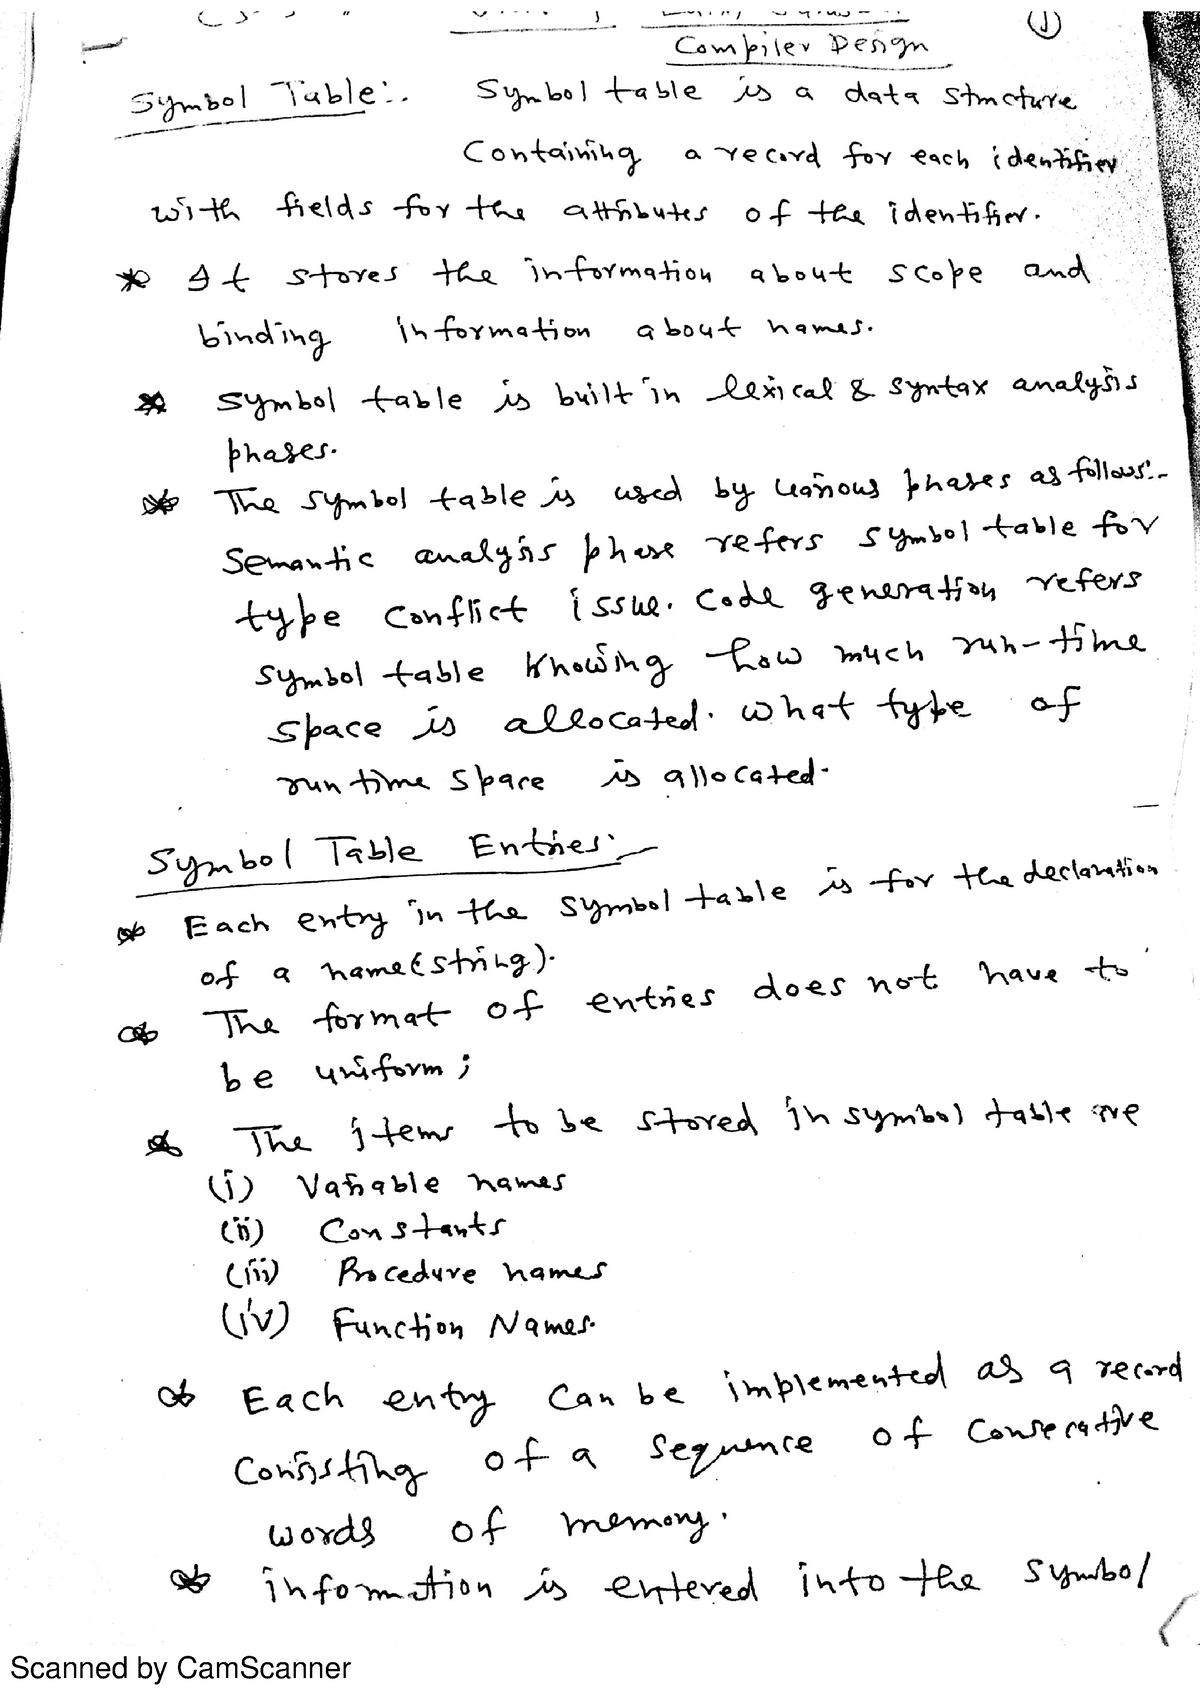 ①
Compiler Design
Symbol Table:. Symbol table is a data structure
Containing a record for each identifier
with fields for the attributes of the identifier.
* It stores the information about scope and
binding information about names.
* Symbol table is built in lexical & syntax analysis
phases.
* The symbol table is used by various phases as follows:-
Semantic analysis phase refers symbol table for
type conflict issue. Code generation refers
symbol table knowing how much run-time
space is allocated. what type of
run time space is allocated.
Symbol Table Entries:-
* Each entry in the symbol table is for the declaration
of a name(string).
* The format of entries does not have to
be uniform;
* The items to be stored in symbol table are
(i) Variable names
(ii) Constants
(iii) Procedure names
(iv) Function Names.
* Each entry can be implemented as a record
Consisting of a sequence of Consecative
words of memory.
* information is entered into the symbol
Scanned by CamScanner